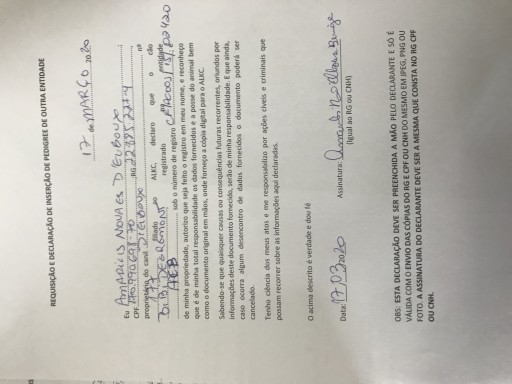 REQUISIÇÃO E DECLARAÇÃO DE INSERÇÃO DE PEDIGREE DE OUTRA ENTIDADE
17 de MARÇO 2020
Eu AMARILIS NOVAES DIEUBOUX
CPF RG
proprietário do canil DIEUBOUX filiado ao nº
ALKC, declaro que o cão
registrado entidade
sob o número de registro
de minha propriedade, autorizo que seja feito o registro em meu nome, e reconheço
que é de minha total responsabilidade os dados fornecidos e a posse do animal bem
como o documento original em mãos, onde forneço a cópia digital para o ALKC.
Sabendo-se que quaisquer causas ou consequências futuras recorrentes, oriundos por
informações deste documento fornecidos, serão de minha responsabilidade. E que ainda,
caso ocorra algum desencontro de dados fornecidos o documento poderá ser
cancelado.
Tenho ciência dos meus atos e me responsabilizo por ações cíveis e criminais que
possam recorrer sobre as informações aqui declaradas.
O acima descrito é verdade e dou fé
Data: 17/03/2020 Assinatura:
(Igual ao RG ou CNH)
OBS: ESTA DECLARAÇÃO DEVE SER PREENCHIDA A MÃO PELO DECLARANTE E SÓ É
VÁLIDA COM O ENVIO DAS CÓPIAS DO RG E CPF OU CNH DO MESMO EM JPEG, PNG OU
FOTO. A ASSINATURA DO DECLARANTE DEVE SER A MESMA QUE CONSTA NO RG CPF
OU CNH.